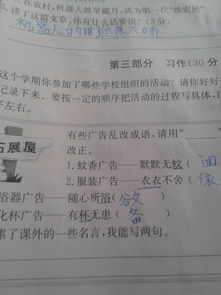 在农村,机器人模型戴月,成为第一代“铁农民”
读了这篇文章,你有什么话要说?(3分)
机器人的用
第三部分 习作(30分
这个学期你参加了哪些学校组织的活动?请你好好
记录下来。要按一定的顺序把活动的过程写具体,
字左右。
有些广告乱改成语,请用“
拓展屋
改正。
1.蚊香广告——默默无蚊(闻
2.服装广告——衣衣不舍(依
浴器广告——随心所浴(欲
化杯广告——有杯无患(备
累了课外的一些名言,我能写两句。